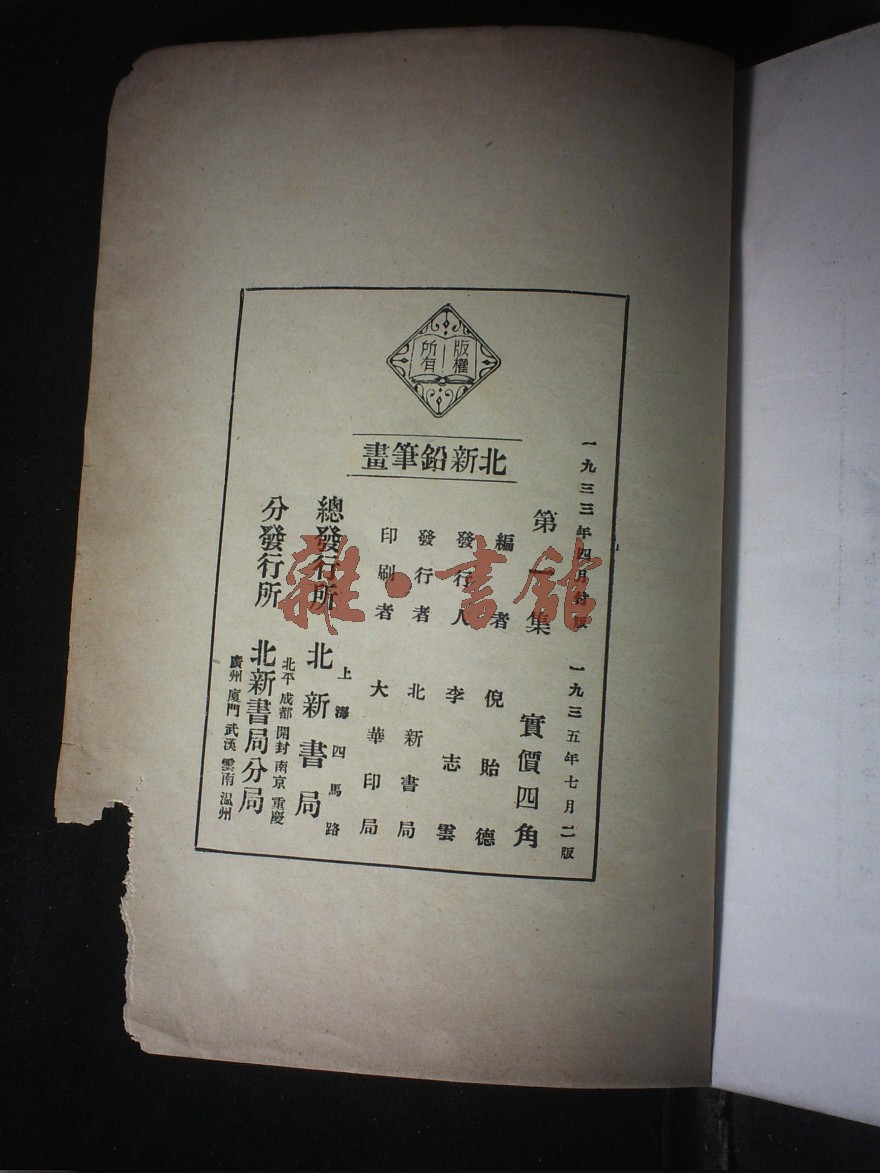 版權
所有
北新鉛筆畫
一九三三年四月付版 一九三五年七月二版
第一集 實價四角
編者 倪貽德
發行人 李志雲
發行者 北新書局
印刷者 大華印局
總發行所 上海四馬路 北新書局
分發行所 北平 成都 開封 南京 重慶
北新書局分局
廣州 廈門 武漢 雲南 溫州
雜·書館